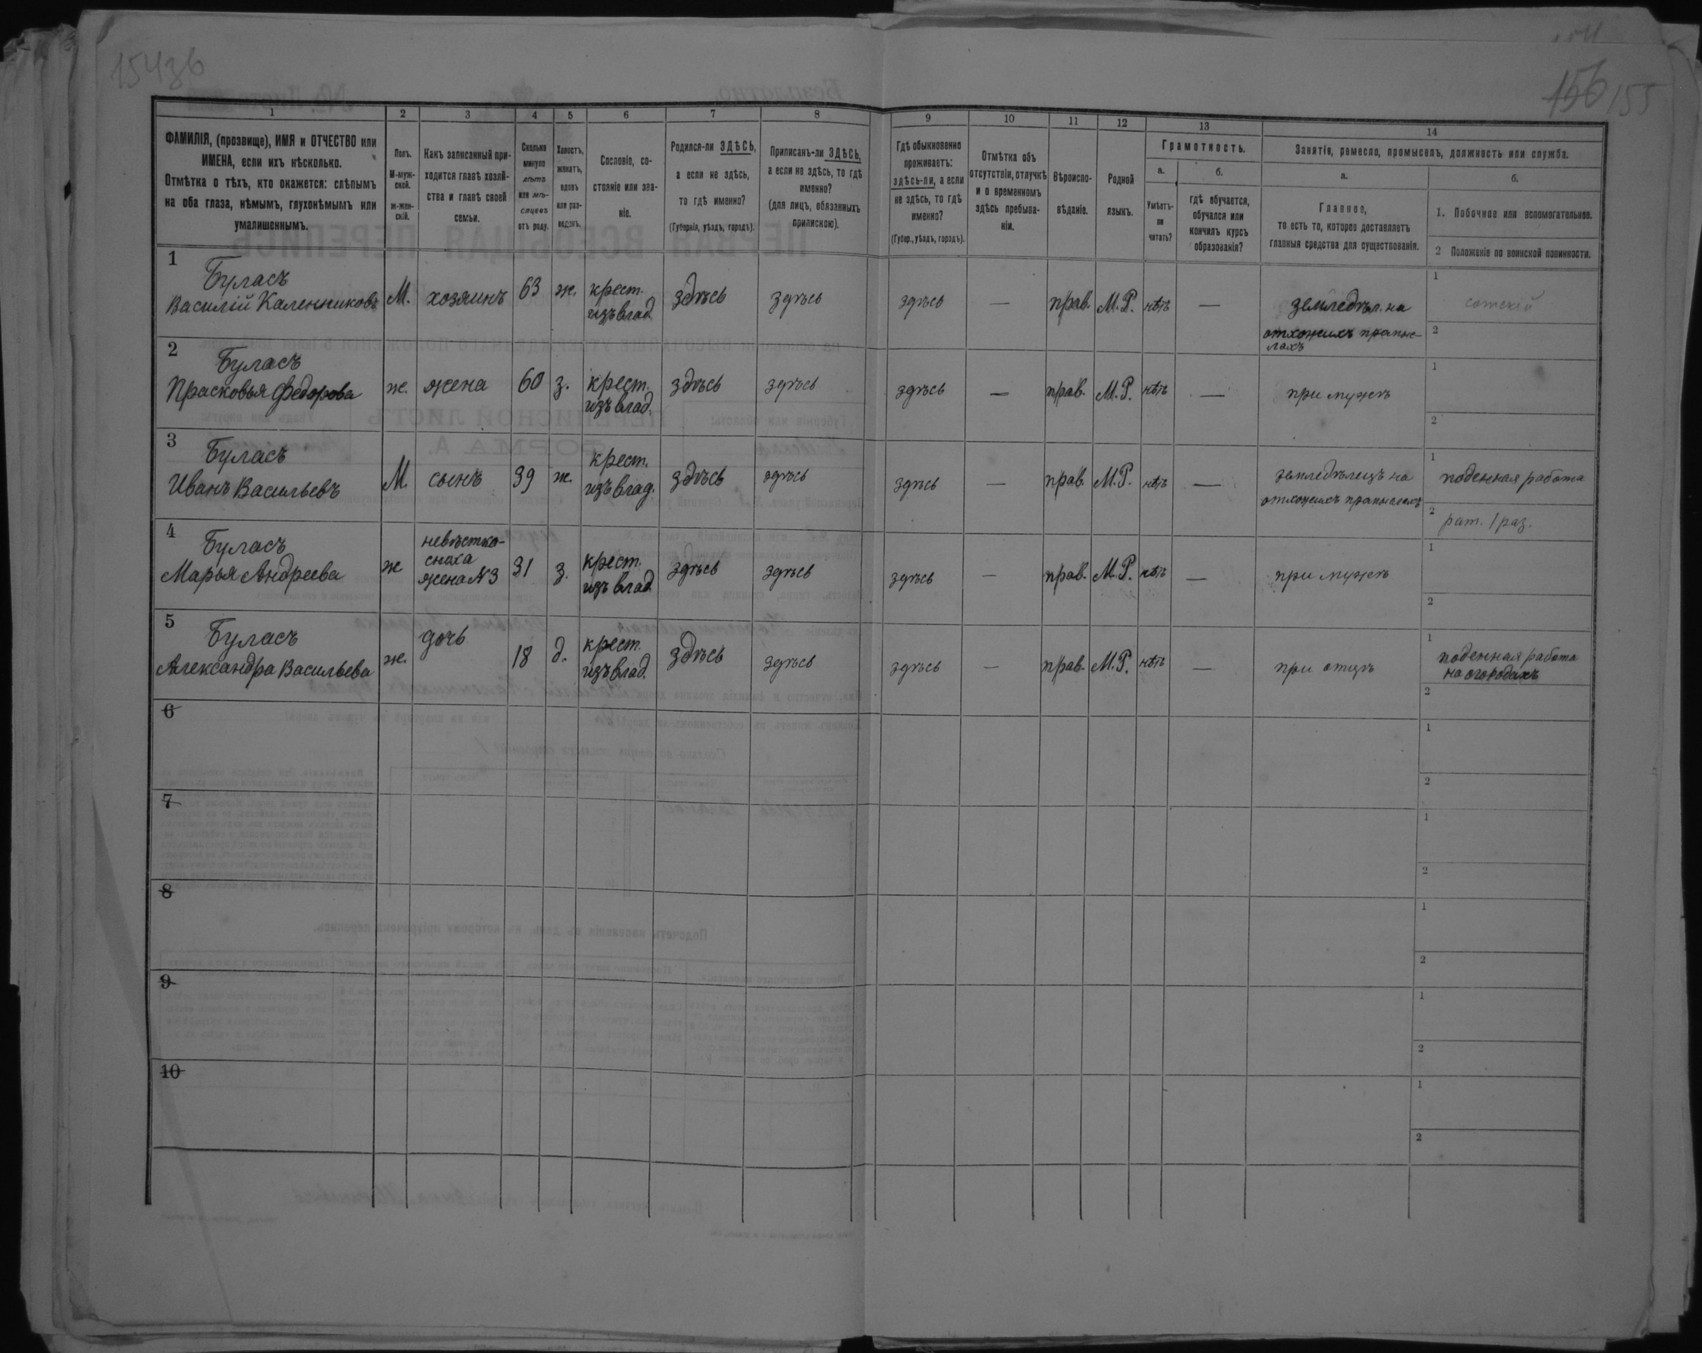 154зв
156 155
1 2 3 4 5 6 7 8 9 10 11 12 13 14
ФАМИЛІЯ, (прозвище), ИМЯ и ОТЧЕСТВО или
ИМЕНА, если ихъ нѣсколько.
Отмѣтка о тѣхъ, кто окажется: слѣпымъ
на оба глаза, нѣмымъ, глухонѣмымъ или
умалишеннымъ.
Полъ.
М-муж-
ской.
ж-жен-
скій.
Какъ записанный при-
ходится главѣ хозяй-
ства и главѣ своей
семьи.
Сколько
минуло
лѣтъ
или мѣ-
сяцевъ
отъ роду.
Холостъ,
женатъ,
вдовъ
или раз-
веденъ.
Сословіе, со-
стояніе или зва-
ніе.
Родился-ли ЗДѢСЬ,
а если не здѣсь,
то гдѣ именно?
(Губернія, уѣздъ, городъ).
Приписанъ-ли ЗДѢСЬ,
а если не здѣсь, то гдѣ
именно?
(для лицъ, обязанныхъ
припискою).
Гдѣ обыкновенно
проживаетъ:
здѣсь-ли, а если
не здѣсь, то гдѣ
именно?
(Губер., уѣздъ, городъ).
Отмѣтка объ
отсутствіи, отлучкѣ
и о временномъ
здѣсь пребыва-
ніи.
Вѣроиспо-
вѣданіе.
Родной
языкъ.
Грамотность.
а.
Умѣетъ-
ли
читать?
б.
гдѣ обучается,
обучался или
кончилъ курсъ
образованія?
Занятіе, ремесло, промыселъ, должность или служба.
а.
Главное,
то есть то, которое доставляетъ
главныя средства для существованія.
б.
1. Побочное или вспомогательное.
2 Положеніе по воинской повинности.
1
Буласъ
Василій Каленниковъ
М. хозяинъ 63 ж. крест.
изъ влад
здѣсь здѣсь здѣсь — прав. М.Р. нѣтъ —
земледѣл. на
отхожихъ промыс-
лахъ
1 сотскій
2
2
Буласъ
Прасковья Федорова
ж. жена 60 з. крест.
изъ влад.
здѣсь здѣсь здѣсь — прав. М.Р. нѣтъ — при мужѣ
1
2
3
Буласъ
Иванъ Васильевъ
М сынъ 39 ж. крест.
изъ влад.
здѣсь здѣсь здѣсь — прав. М.Р. нѣтъ —
земледѣлецъ на
отхожихъ промыслахъ
1 поденная работа
2 рат. 1 раз.
4
Буласъ
Марья Андреева
ж
невѣстка-
сноха
жена №3
31 з. крест.
изъ влад
здѣсь здѣсь здѣсь — прав. М.Р. нѣтъ — при мужѣ
1
2
5
Буласъ
Александра Васильева
ж. дочь 18 д. крест.
изъ влад.
здѣсь здѣсь здѣсь — прав. М.Р. нѣтъ — при отцѣ
1 поденная работа
на огородахъ
2
6
1
2
7
1
2
8
1
2
9
1
2
10
1
2